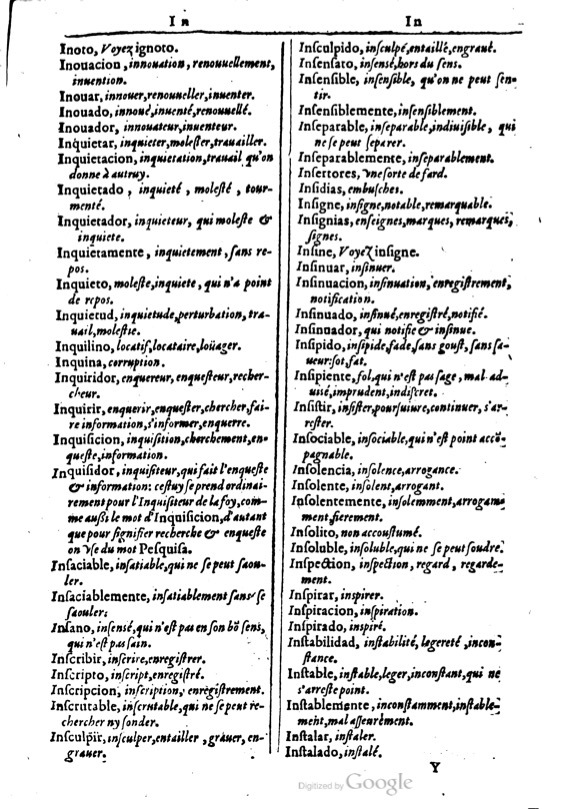 In
Inoto, Voyez ignoto.
Inouacion, innouation, renouuellement,
inuention.
Inouar, innouer, renouueller, inuenter.
Inouado, innoué, inuenté, renouuellé.
Inouador, innouateur, inuenteur.
Inquietar, inquieter, molester, trauailler.
Inquietacion, inquietation, trauail qu'on
donne à autruy.
Inquietado, inquieté, molesté, tour-
menté.
Inquietador, inquieteur, qui moleste &
inquiete.
Inquietamente, inquietement, sans re-
pos.
Inquieto, moleste, inquiete, qui n'a point
de repos.
Inquietud, inquietude, perturbation, tra-
uail, molestie.
Inquilino, locatif, locataire, loüager.
Inquina, corruption.
Inquiridor, enquereur, enquesteur, recher-
cheur.
Inquirir, enquerir, enquester, chercher, fai-
re information, s'informer, enquerre.
Inquisicion, inquisition, cherchement, en-
queste, information.
Inquisidor, inquisiteur, qui fait l'enqueste
& information: cestuy se prend ordinai-
rement pour l'Inquisiteur de la foy, com-
me außi le mot d'Inquisicion, d'autant
que pour signifier recherche & enqueste
on vse du mot Pesquisa.
Insaciable, insatiable, qui ne se peut saou-
ler.
Insaciablemente, insatiablement sans se
saouler.
Insano, insensé, qui n'est pas en son bõ sens,
qui n'est pas sain.
Inscribir, inscrire, enregistrer.
Inscripto, inscript, enregistré.
Inscripcion, inscription, enregistrement.
Inscrutable, inscrutable, qui ne se peut re-
chercher ny sonder.
Insculpir, insculper, entailler, grauer, en-
grauer.
In
Insculpido, insculpé, entaillé, engraué.
Insensato, insensé, hors du sens.
Insensible, insensible, qu'on ne peut sen-
tir.
Insensiblemente, insensiblement.
Inseparable, inseparable, indiuisible, qui
ne se peut separer.
Inseparablemente, inseparablement.
Insertores, vne sorte de fard.
Insidias, embusches.
Insigne, insigne, notable, remarquable.
Insignias, enseignes, marques, remarques,
signes.
Insine, Voyez insigne.
Insinuar, insinuer.
Insinuacion, insinuation, enregistrement,
notification.
Insinuado, insinué, enregistré, notifié.
Insinuador, qui notifie & insinue.
Insipido, insipide, fade, sans goust, sans sa-
ueur: sot, fat.
Insipiente, fol, qui n'est pas sage, mal ad-
uisé, imprudent, indiscret.
Insistir, insister, poursuiure, continuer, s'ar-
rester.
Insociable, insociable, qui n'est point accõ-
pagnable.
Insolencia, insolence, arrogance.
Insolente, insolent, arrogant.
Insolentemente, insolemment, arrogam-
ment, fierement.
Insolito, non accoustumé.
Insoluble, insoluble, qui ne se peut soudre.
Inspection, inspection, regard, regarde-
ment.
Inspirar, inspirer.
Inspiracion, inspiration.
Inspirado, inspiré.
Instabilidad, instabilité, legereté, incon-
stance.
Instable, instable, leger, inconstant, qui ne
s'arreste point.
Instablemente, inconstamment, instable-
ment, mal asseurément.
Instalar, instaler.
Instalado, instalé.
Y
Digitized by Google